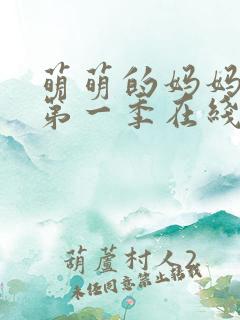 萌萌的妈妈
第一季在线
葫蘆村人2
未经同意禁止转载